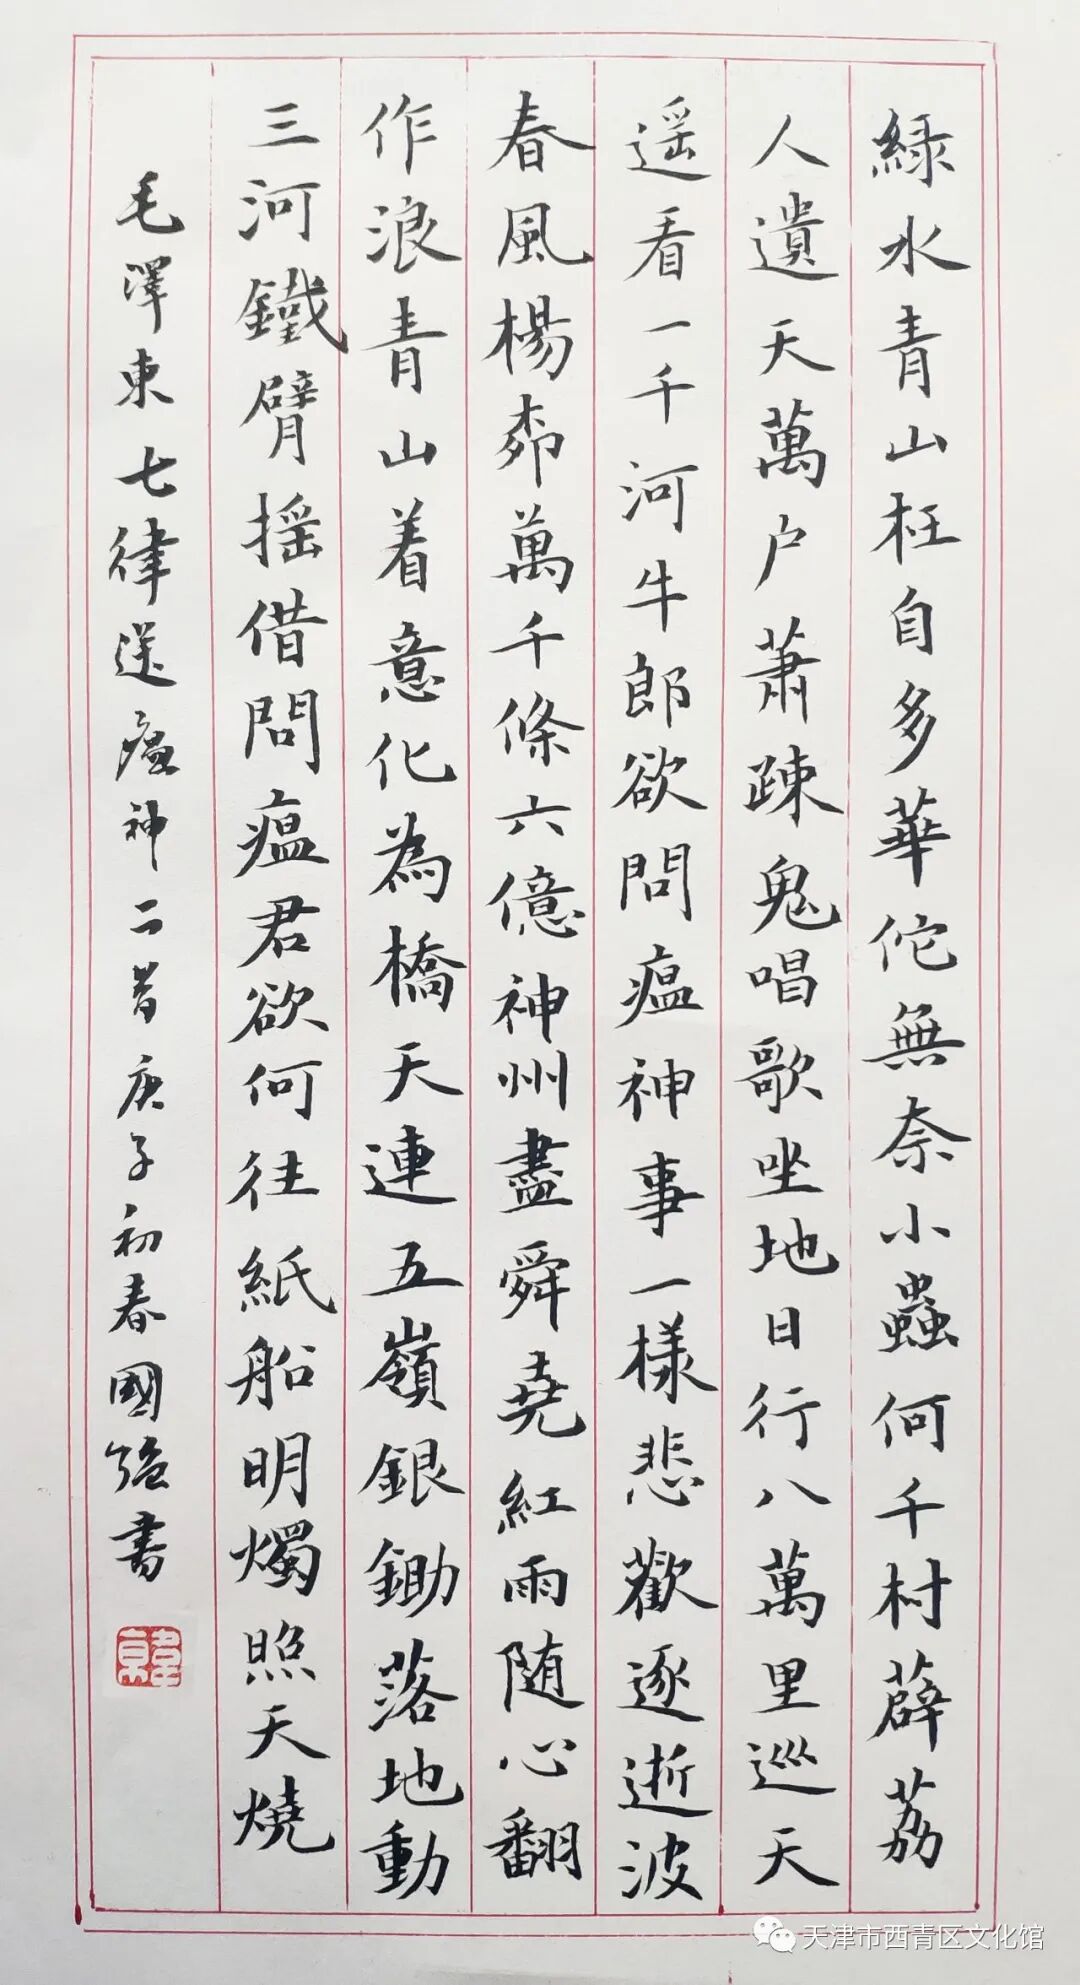 緑水青山枉自多華佗無奈小蟲何千村薜荔
人遺矢萬户蕭疎鬼唱歌坐地日行八萬里巡天
遥看一千河牛郎欲問瘟神事一樣悲歡逐逝波
春風楊柳萬千條六億神州盡舜堯紅雨随心翻
作浪青山着意化為橋天連五嶺銀鋤落地動
三河鐵臂摇借問瘟君欲何往紙船明燭照天燒
毛澤東七律送瘟神二首庚子初春國強書
天津市西青区文化馆